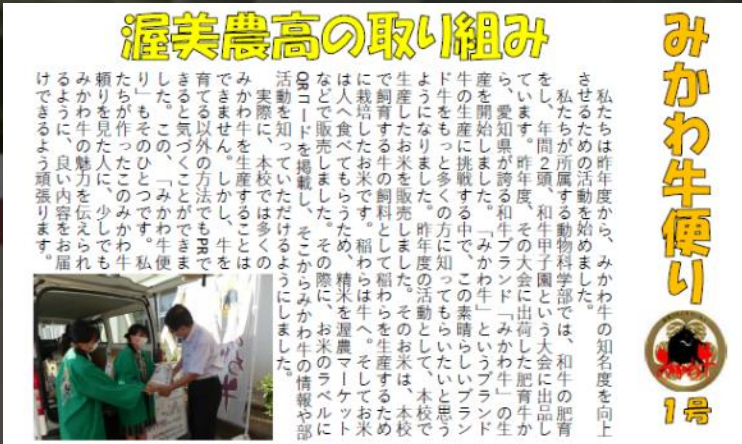 みかわ牛便り
1号
渥美農高の取り組み
私たちは昨年度から、みかわ牛の知名度を向上
させるための活動を始めました。
私たちが所属する動物科学部では、和牛の肥育
をし、年間２頭、和牛甲子園という大会に出品し
ています。昨年度、その大会に出荷した肥育牛か
ら、愛知県が誇る和牛ブランド「みかわ牛」の生
産を開始しました。「みかわ牛」というブランド
牛の生産に挑戦する中で、この素晴らしいブラン
ド牛をもっと多くの方に知ってもらいたいと思う
ようになりました。昨年度の活動として、本校で
生産したお米を販売しました。そのお米は、本校
で飼育する牛の飼料として稲わらを生産するため
に栽培したお米です。稲わらは牛へ。そしてお米
は人へ食べてもらうため、精米を渥農マーケット
などで販売しました。その際に、お米のラベルに
QRコードを掲載し、そこからみかわ牛の情報や部
活動を知っていただけるようにしました。
実際に、本校では多くの
みかわ牛を生産することは
できません。しかし、牛を
育てる以外の方法でもPRで
きると気づくことができま
した。この、「みかわ牛便
り」もそのひとつです。私
たちが作ったこのみかわ牛
頼りを見た人に、少しでも
みかわ牛の魅力を伝えられ
るように、良い内容をお届
けできるよう頑張ります。